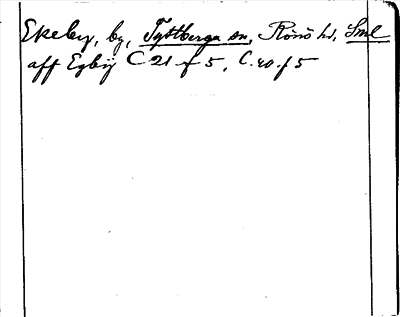 Ekeby, by, Tystberga sn, Rönö hd, Sml
aff Egbÿ C 21 f 5, C. 20. f 5